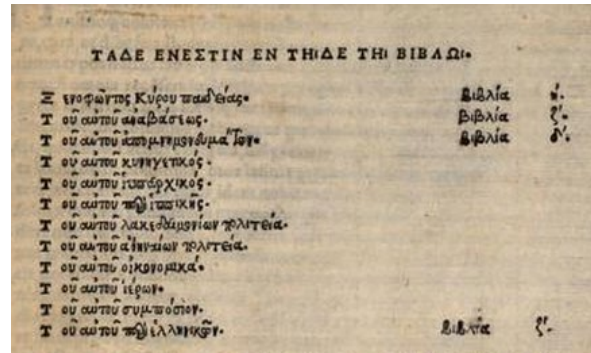 ΤΑΔΕ ΕΝΕΣΤΙΝ ΕΝ ΤΗΙΔΕ ΤΗΙ ΒΙΒΛΩΙ.
Ξενοφῶντος Κύρου παιδείας. βιβλία ή.
Τοῦ αὐτοῦ ἀναβάσεως. βιβλία ζ'.
Τοῦ αὐτοῦ ἀπομνημονευμάτων. βιβλία δ'.
Τοῦ αὐτοῦ κυνηγετικός.
Τοῦ αὐτοῦ ἱππαρχικός.
Τοῦ αὐτοῦ περὶ ἱππικῆς.
Τοῦ αὐτοῦ λακεδαιμονίων πολιτεία.
Τοῦ αὐτοῦ ἀθηναίων πολιτεία.
Τοῦ αὐτοῦ οἰκονομικά.
Τοῦ αὐτοῦ ἱέρων.
Τοῦ αὐτοῦ συμπόσιον.
Τοῦ αὐτοῦ περὶ ἑλληνικῶν. βιβλία ζ'.